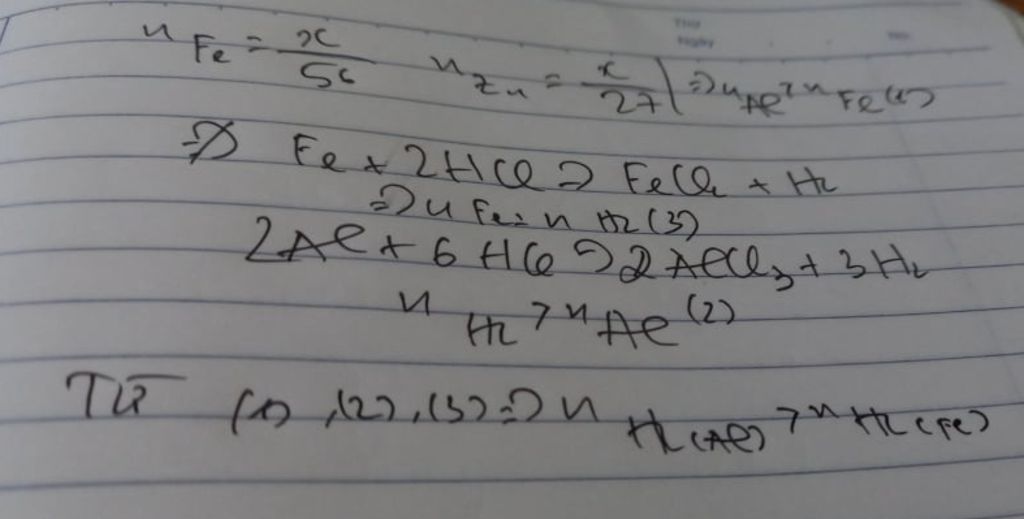 n Fe = x/56 n Zn = x/27 | => n Al > n Fe (1)
=> Fe + 2HCl => FeCl2 + H2
=> n Fe = n H2 (3)
2Al + 6HCl => 2AlCl3 + 3H2
n H2 > n Al (2)
Từ (1), (2), (3) => n H2 (Al) > n H2 (Fe)